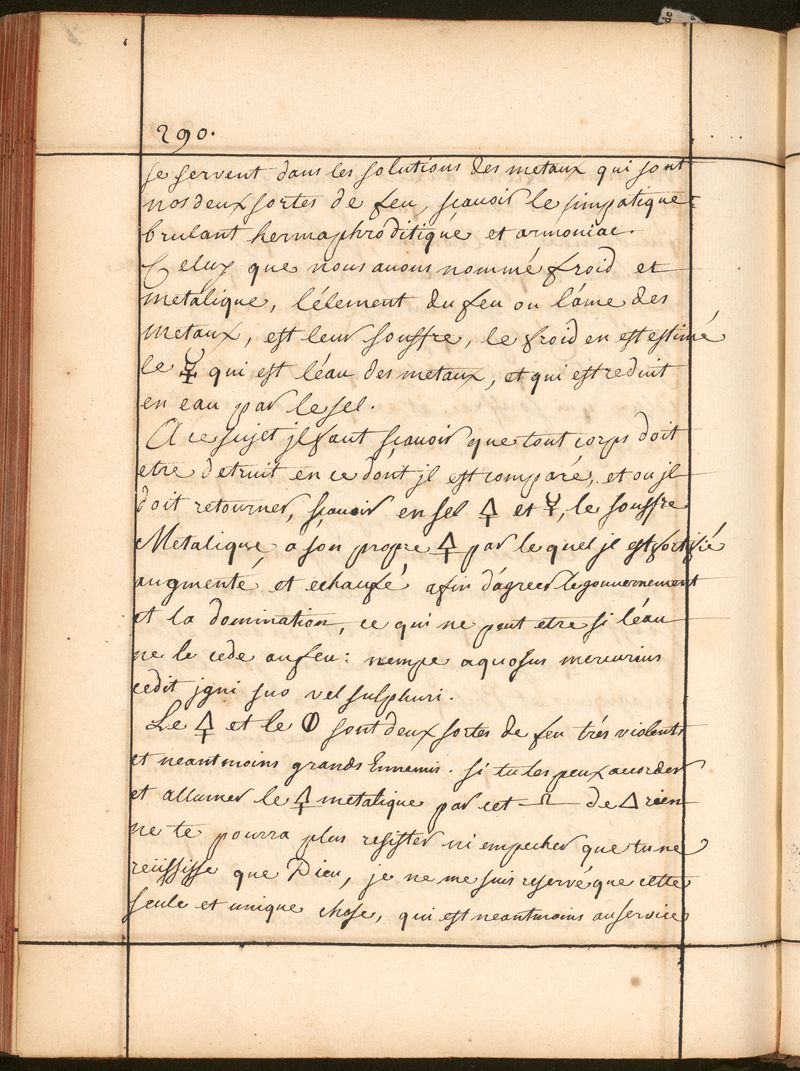 290.
se servent dans les solutions des metaux qui sont
nos deux sortes de feu, scavoir le simpatique
brulant hermaphroditique et armoniac.
Celuy que nous avons nommé froid et
metalique, l'élement du feu ou l'ame des
metaux, est leur souffre, le froid en est estimé
le ☿ qui est l'eau des metaux, et qui est reduit
en eau par le sel.
A ce sujet jl faut scavoir que tout corps doit
etre detruit en ce dont jl est comparé, et ou jl
doit retourner, scavoir en sel 🜍 et ☿, le souffre
Metalique a son propre 🜍 par lequel jl est fortifié
augmenté et echaufé afin d'agreer le gouvernement
et la domination, ce qui ne peut etre si l'eau
ne le cede au feu: nempe aquosus mercurius
cedit jgni suo vel sulphuri.
Le 🜍 et le 🜕 sont deux sortes de feu trés violents
et neantmoins grands Ennemis. si tu les peux accorder
et allumer le 🜍 metalique par cet de 🜂 rien
ne te pourra plus resister ni empecher que tu ne
reüssisse que Dieu, je ne me suis reservé que cette
seule et unique chose, qui est neantmoins au service
de